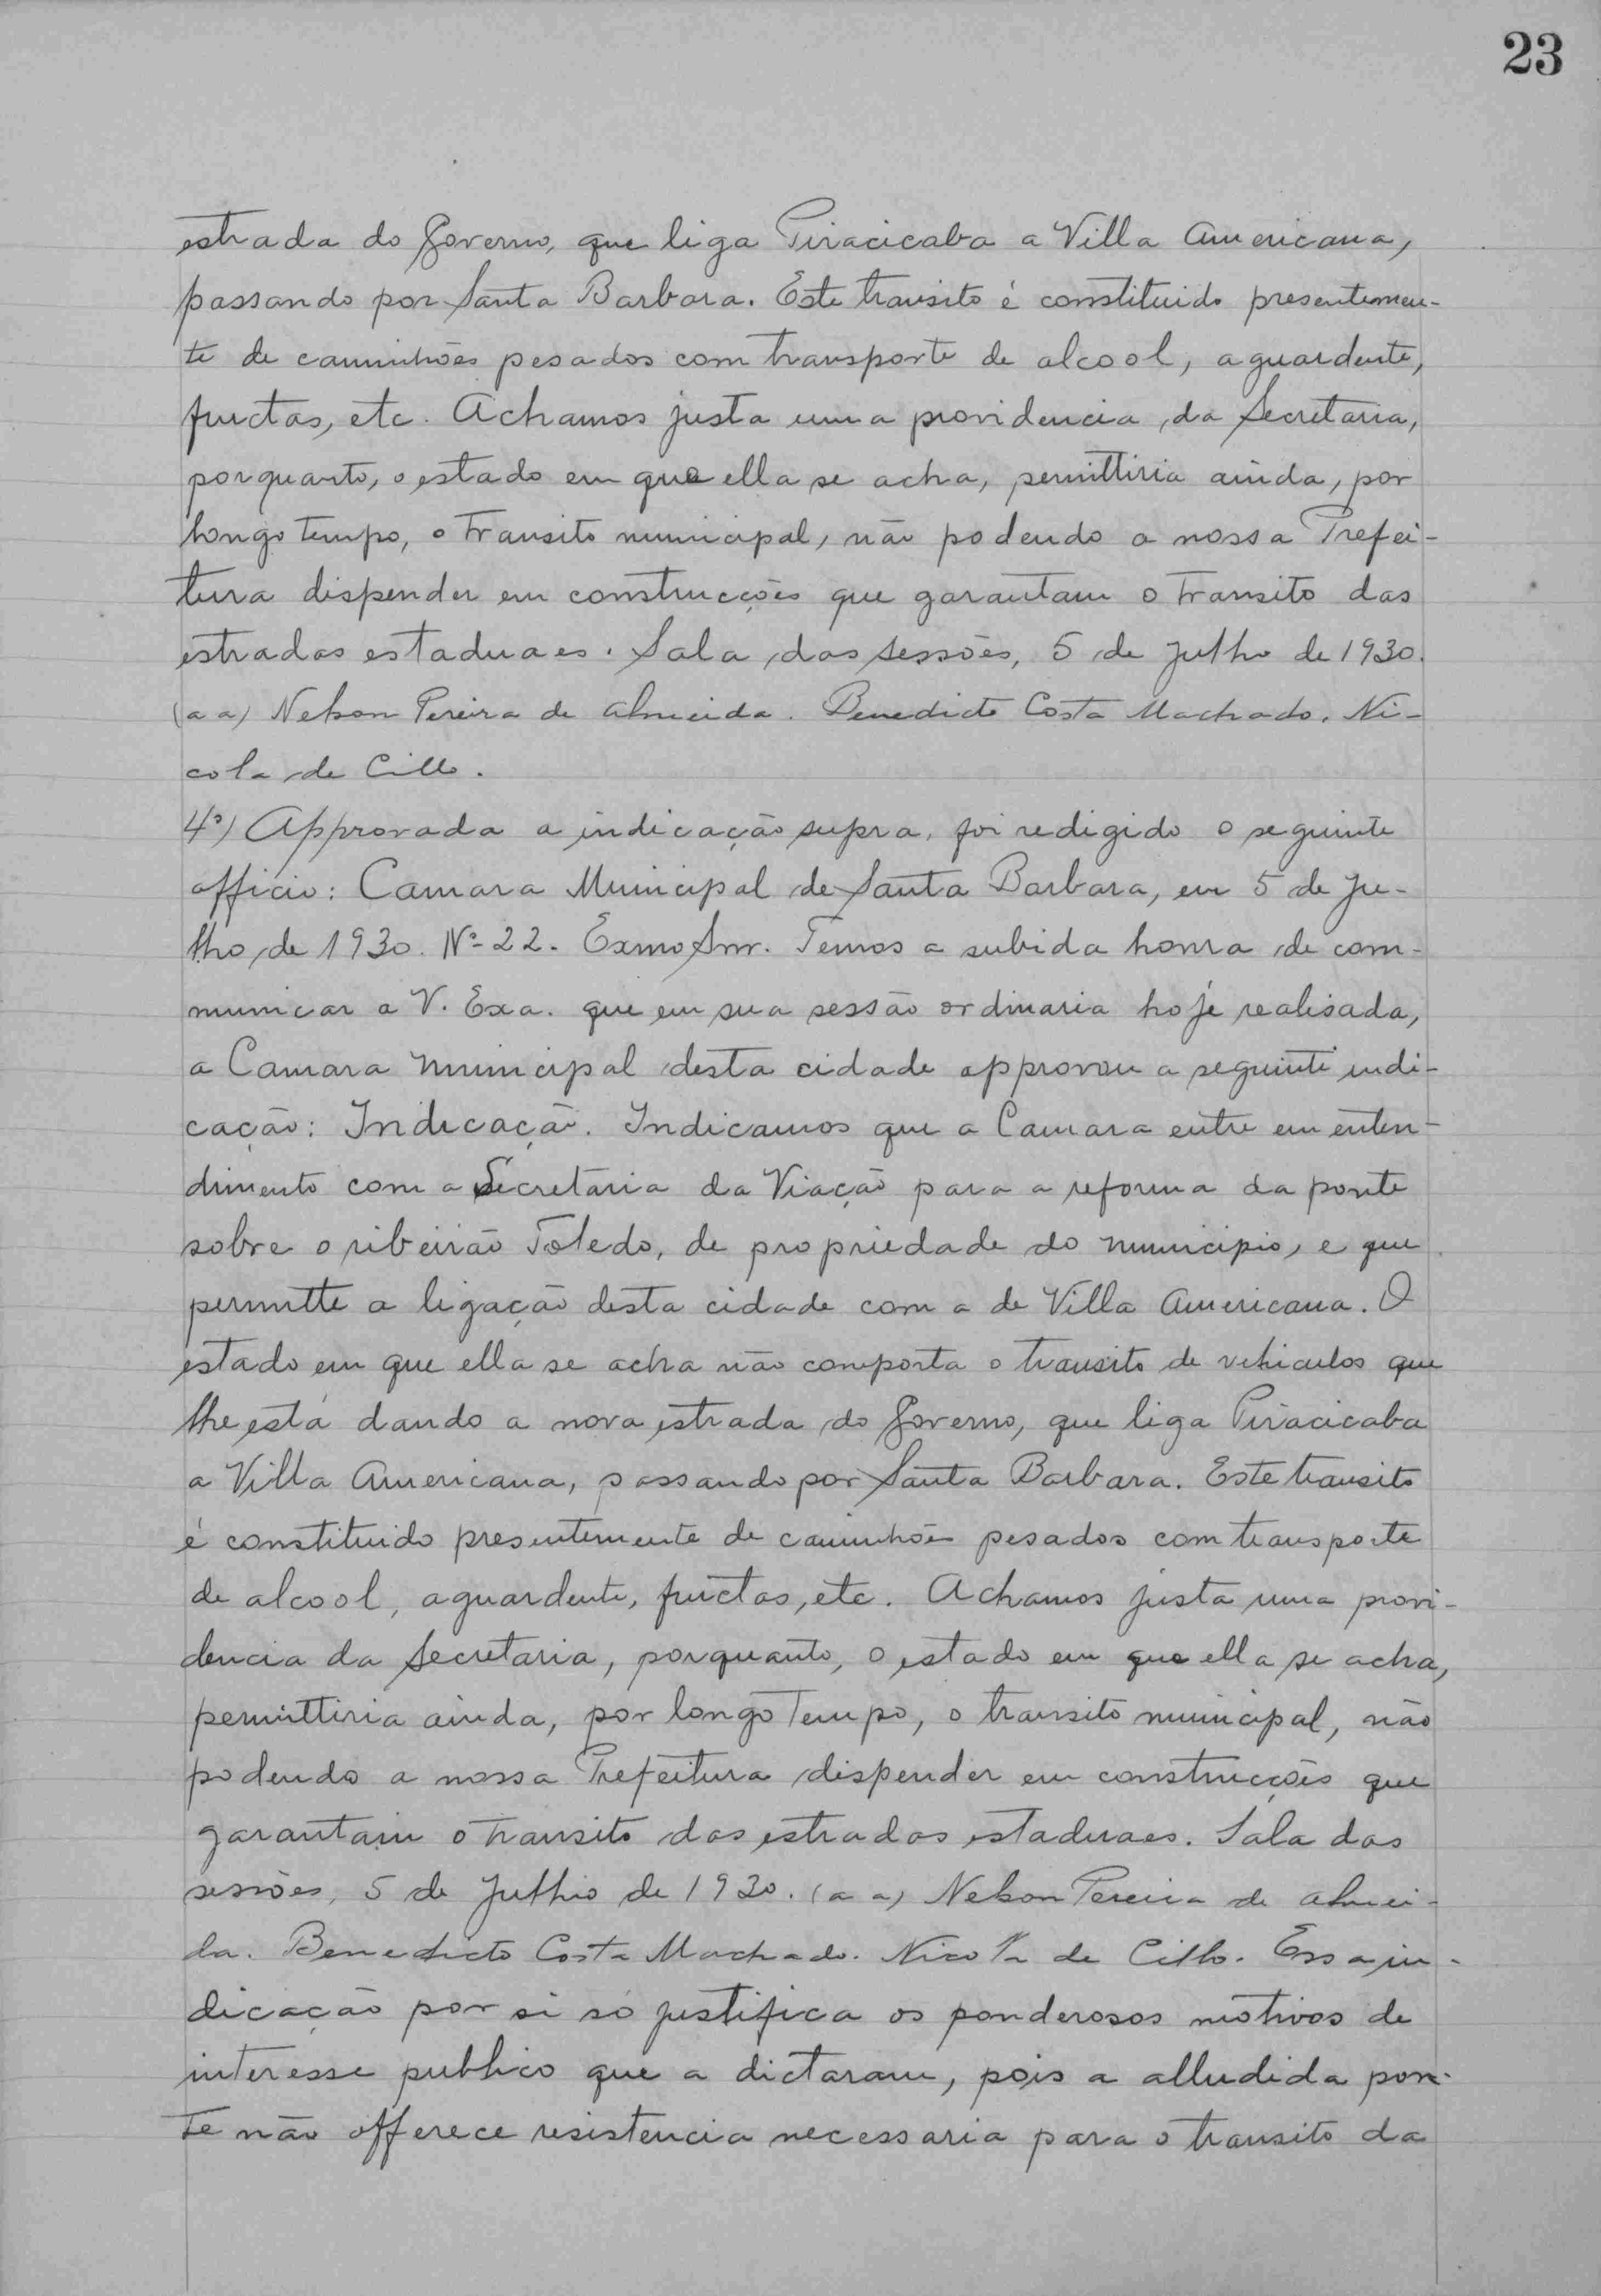 23
estrada do Governo, que liga Piracicaba a Villa Americana,
passando por Santa Barbara. Este transito é constituido presentemen-
te de caminhões pesados com transporte de alcool, aguardente,
fructas, etc. Achamos justa uma providencia da Secretaria,
porquanto, o estado em que ella se acha, permittiria ainda, por
longo tempo, o transito municipal, não podendo a nossa Prefei-
tura dispender em construcções que garantam o transito das
estradas estaduaes. Sala das sessões, 5 de Julho de 1930.
(a a) Nelson Pereira de Almeida. Benedicto Costa Machado. Ni-
cola de Cillo.
4º) Approvada a indicação supra, foi redigido o seguinte
officio: Camara Municipal de Santa Barbara, em 5 de Ju-
lho de 1930. Nº 22. Exmo Snr. Temos a subida honra de com-
municar a V. Exa. que em sua sessão ordinaria hoje realisada,
a Camara Municipal desta cidade approvou a seguinte indi-
cação: Indicação. Indicamos que a Camara entre em enten-
dimento com a Secretaria da Viação para a reforma da ponte
sobre o ribeirão Toledo, de propriedade do municipio, e que
permitte a ligação desta cidade com a de Villa Americana. O
estado em que ella se acha não comporta o transito de vehiculos que
lhe está dando a nova estrada do Governo, que liga Piracicaba
a Villa Americana, passando por Santa Barbara. Este transito
é constituido presentemente de caminhões pesados com transporte
de alcool, aguardente, fructas, etc. Achamos justa uma provi-
dencia da Secretaria, porquanto, o estado em que ella se acha,
permittiria ainda, por longo tempo, o transito municipal, não
podendo a nossa Prefeitura dispender em construcções que
garantam o transito das estradas estaduaes. Sala das
sessões, 5 de Julho de 1930. (a a) Nelson Pereira de Almei-
da. Benedicto Costa Machado. Nicola de Cillo. Essa in-
dicação por si só justifica os ponderosos motivos de
interesse publico que a dictaram, pois a alludida pon-
te não offerece resistencia necessaria para o transito da